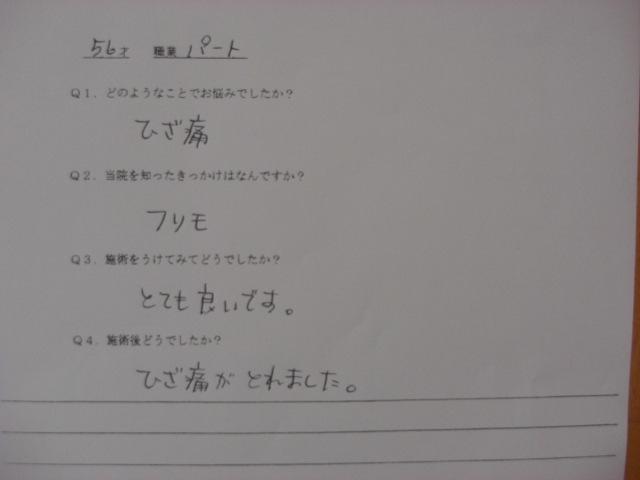 56才 職業 パート
Q1．どのようなことでお悩みでしたか？
ひざ痛
Q2．当院を知ったきっかけはなんですか？
フリモ
Q3．施術をうけてみてどうでしたか？
とても良いです。
Q4．施術後どうでしたか？
ひざ痛がとれました。